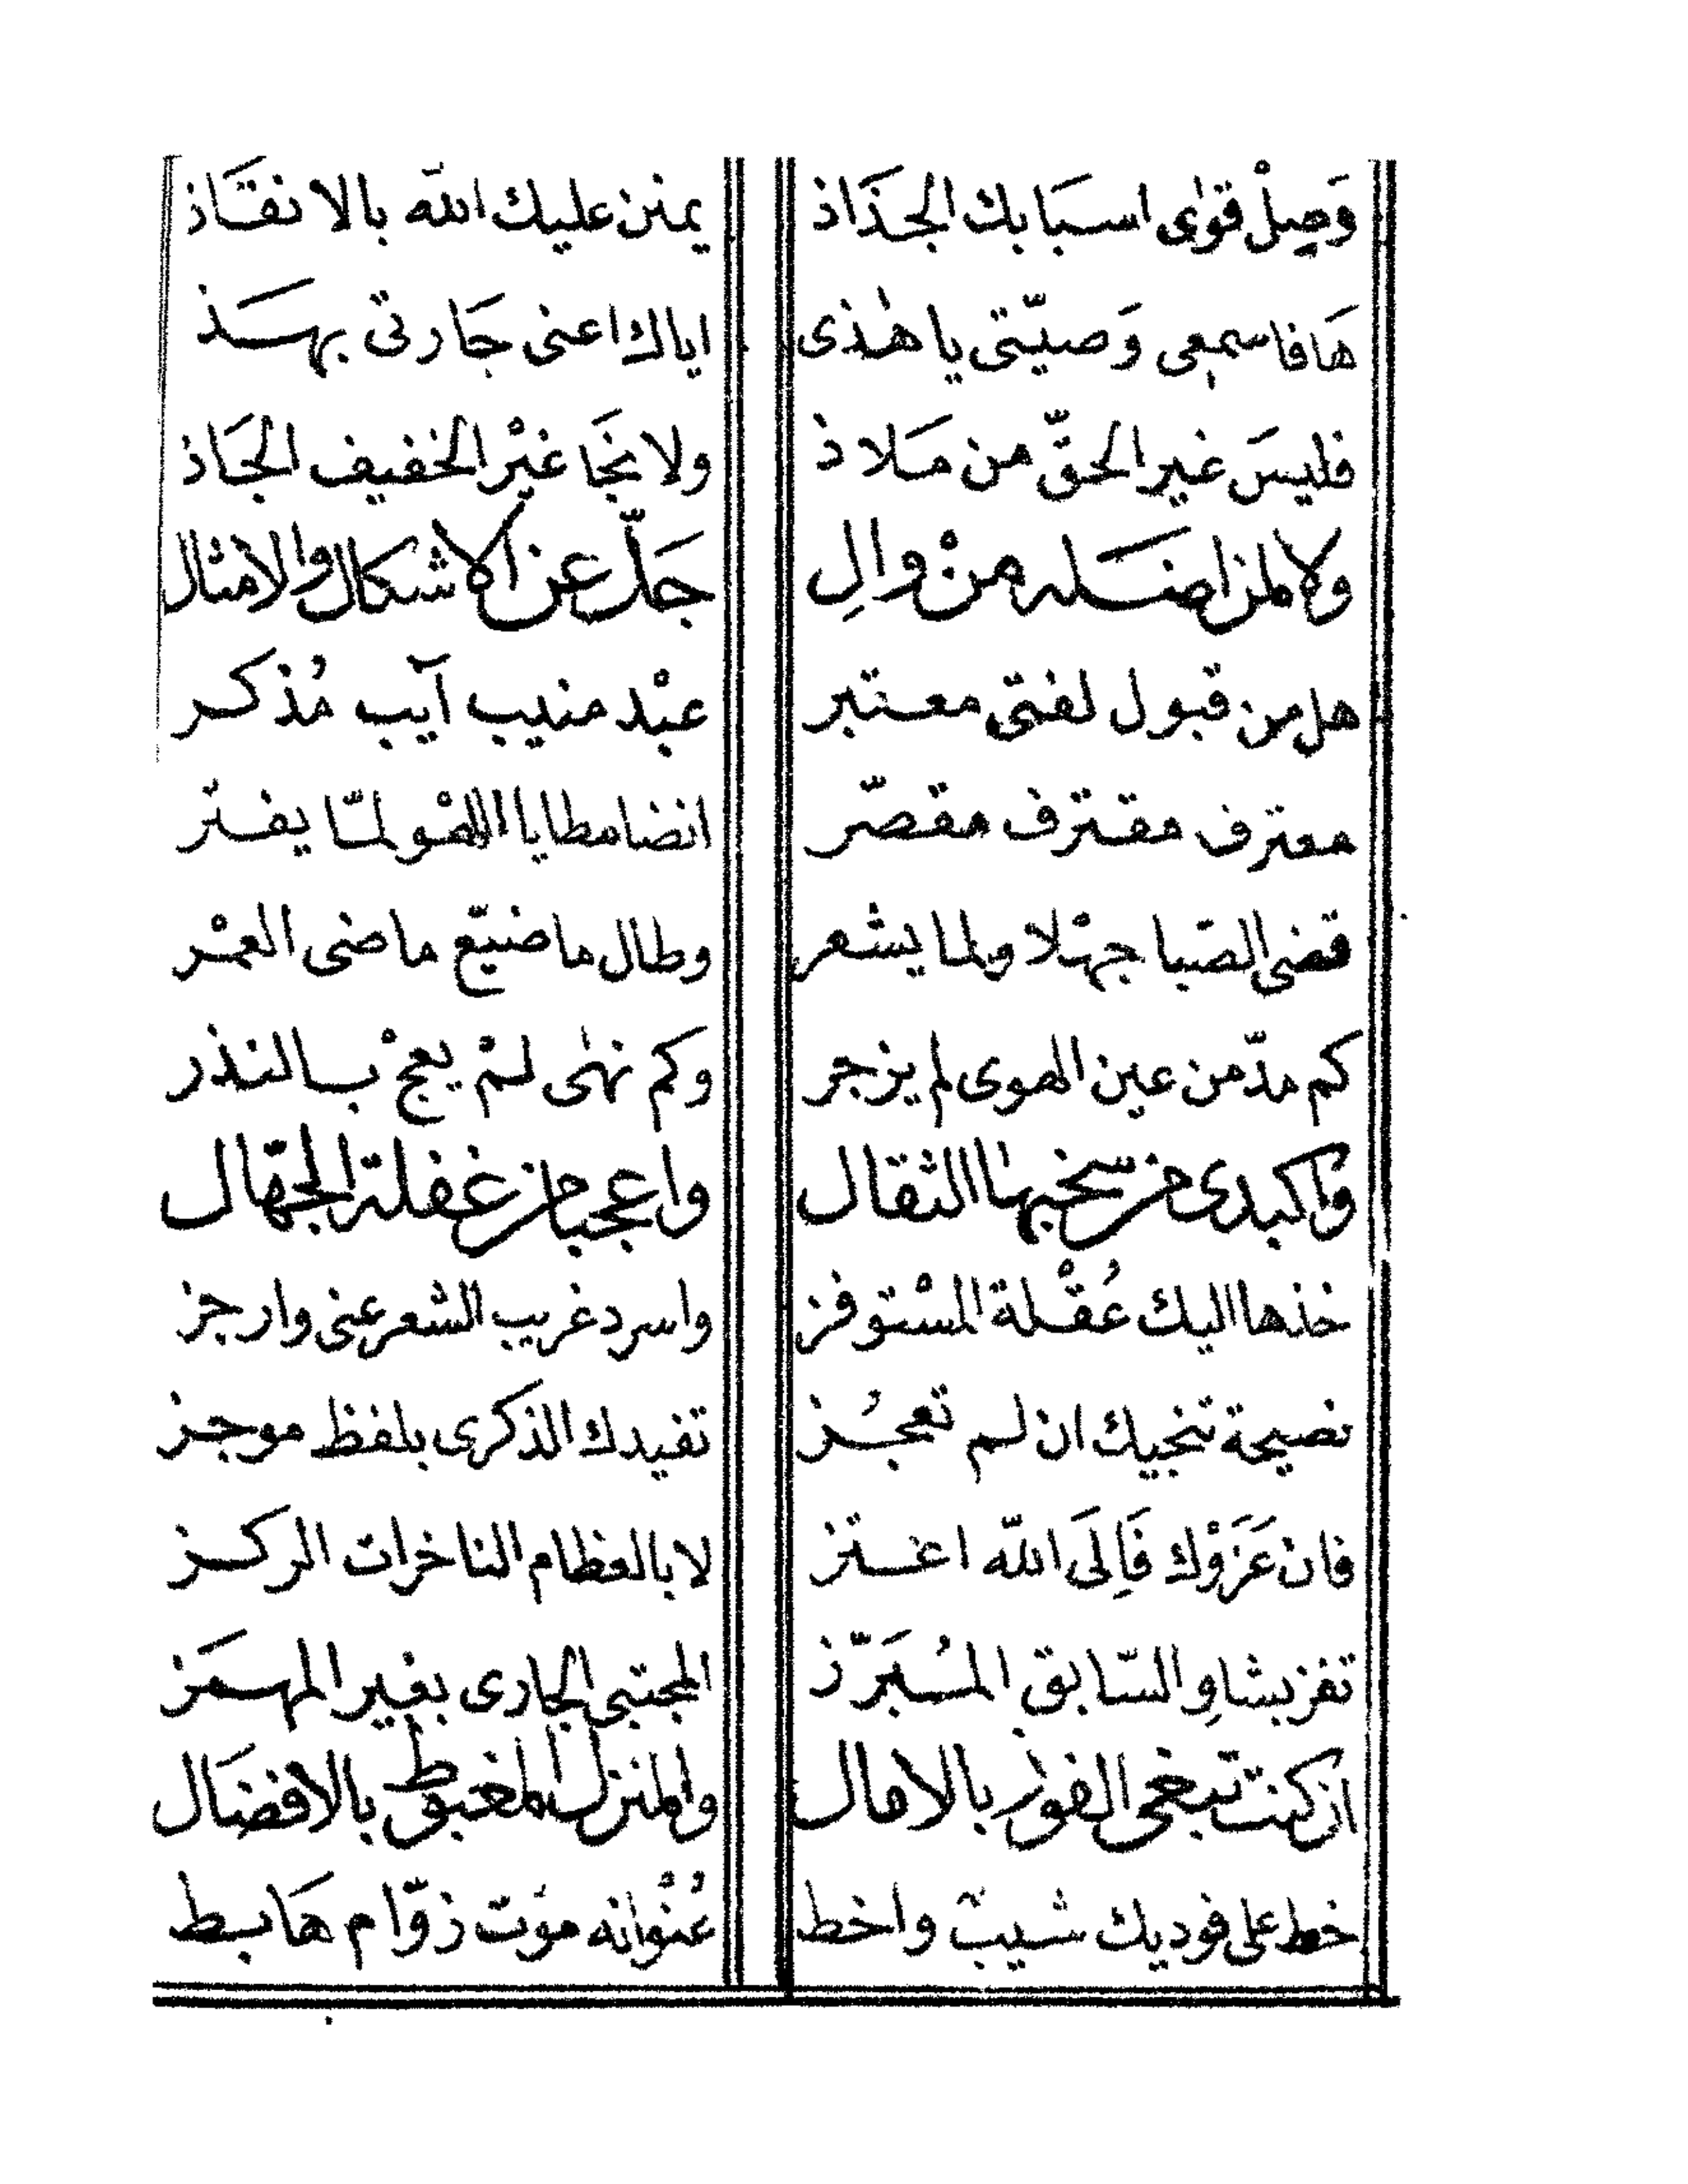 وَصِلْ قوٰى اسبَابك الجذَاذ يمنن عليك الله بالانقَاذ
هَافاسمعى وَصيّتى يا هٰذى اياك اعنى جَارتى بهَذ
فليسَ غير الحقّ من مَلاذ ولا نجَا غيْر الخفيف الحَاذ
ولا لمن اضَله منْ والِ جَلّ عن الاشكال والامثال
هل من قبول لفتى معتبر عبْد منيب آيب مُذكر
معترف مقترف مقصّر انضا مطايا اللهْو لمّا يفتر
قضى الصّبا جهْلا ولما يشعر وطال ما ضيّع ماضى العمْر
كم مدّ من عين الهوى لم يزجر وكم نهٰى لمْ يعجْ بالنذر
وَاكبدى من سخبها الثقال واعجبا من غفلة الجهّال
خذها اليك عُقْلة المسْتوفز واسرد غريب الشعر عنى وارجز
نصيحة تنجيك ان لم تعجُز تفيدك الذكرى بلفظ موجز
فان عَزَوْك فَاِلَى الله اعتز لا بالعظام الناخرات الركز
تفز بشاوِ السّابق المُبَرّز المجتبى الجارى بغير المهمَز
ان كنت تبغى الفوز بالامال والمنزل المغبوط بالافضَال
خط على فوديك شيب واخط عُنْوانه موت زوّام هَابط